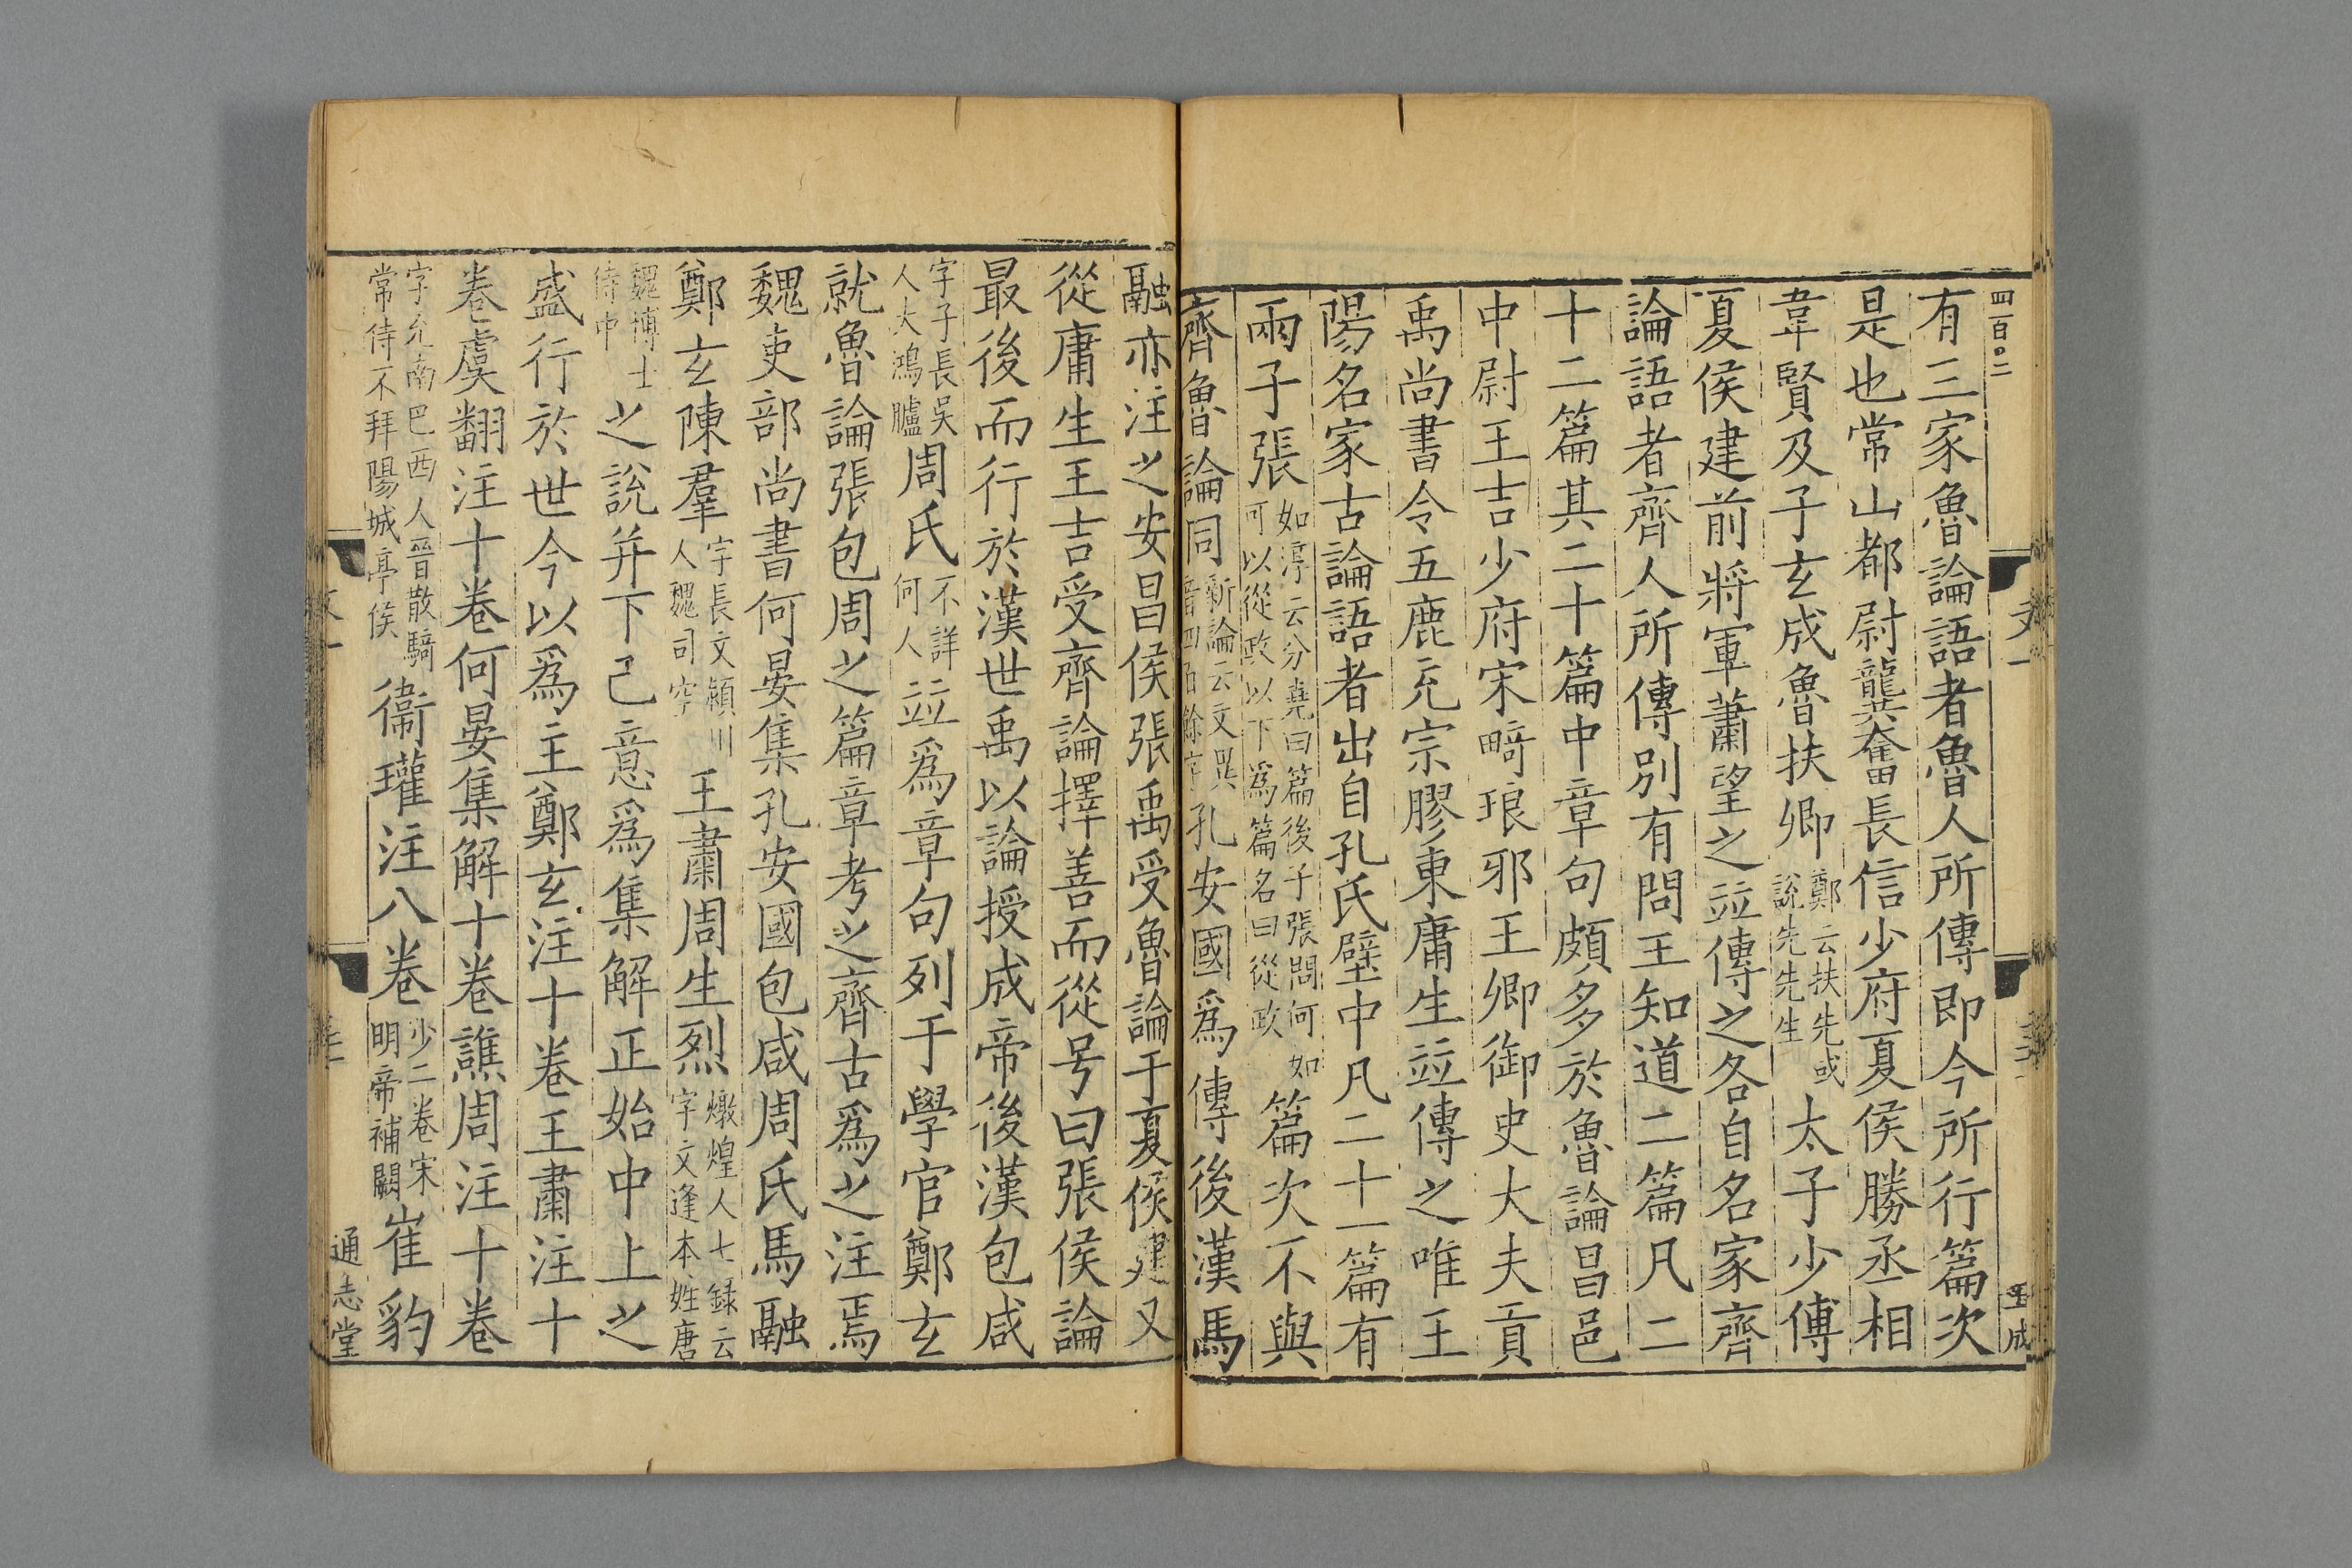 四百〇二
有三家魯論語者魯人所傳即今所行篇次
是也常山都尉龔奮長信少府夏侯勝丞相
韋賢及子玄成魯扶卿鄭云扶先或說先先生太子少傅
夏侯建前將軍蕭望之竝傳之各自名家齊
論語者齊人所傳別有問王知道二篇凡二
十二篇其二十篇中章句頗多於魯論昌邑
中尉王吉少府宋畸琅邪王卿御史大夫貢
禹尚書令五鹿充宗膠東庸生竝傳之唯王
陽名家古論語者出自孔氏壁中凡二十一篇有
兩子張如淳云分堯曰篇後子張問何如可以從政以下爲篇名曰從政篇次不與
齊魯論同新論云文異音四百餘字孔安國爲傳後漢馬
融亦注之安昌侯張禹受魯論于夏侯建又
從庸生王吉受齊論擇善而從号曰張侯論
最後而行於漢世禹以論授成帝後漢包咸
字子長吳人大鴻臚周氏不詳何人竝爲章句列于學官鄭玄
就魯論張包周之篇章考之齊古爲之注焉
魏吏部尚書何晏集孔安國包咸周氏馬融
鄭玄陳羣字長文潁川人魏司空王肅周生烈燉煌人七録云字文逢本姓唐
魏博士侍中之說并下己意爲集解正始中上之
盛行於世今以爲主鄭玄注十卷王肅注十
卷虞翻注十卷何晏集解十卷譙周注十卷
字允南巴西人晉散騎常侍不拜陽城亭侯衞瓘注八卷少二卷宋明帝補闕崔豹
通志堂